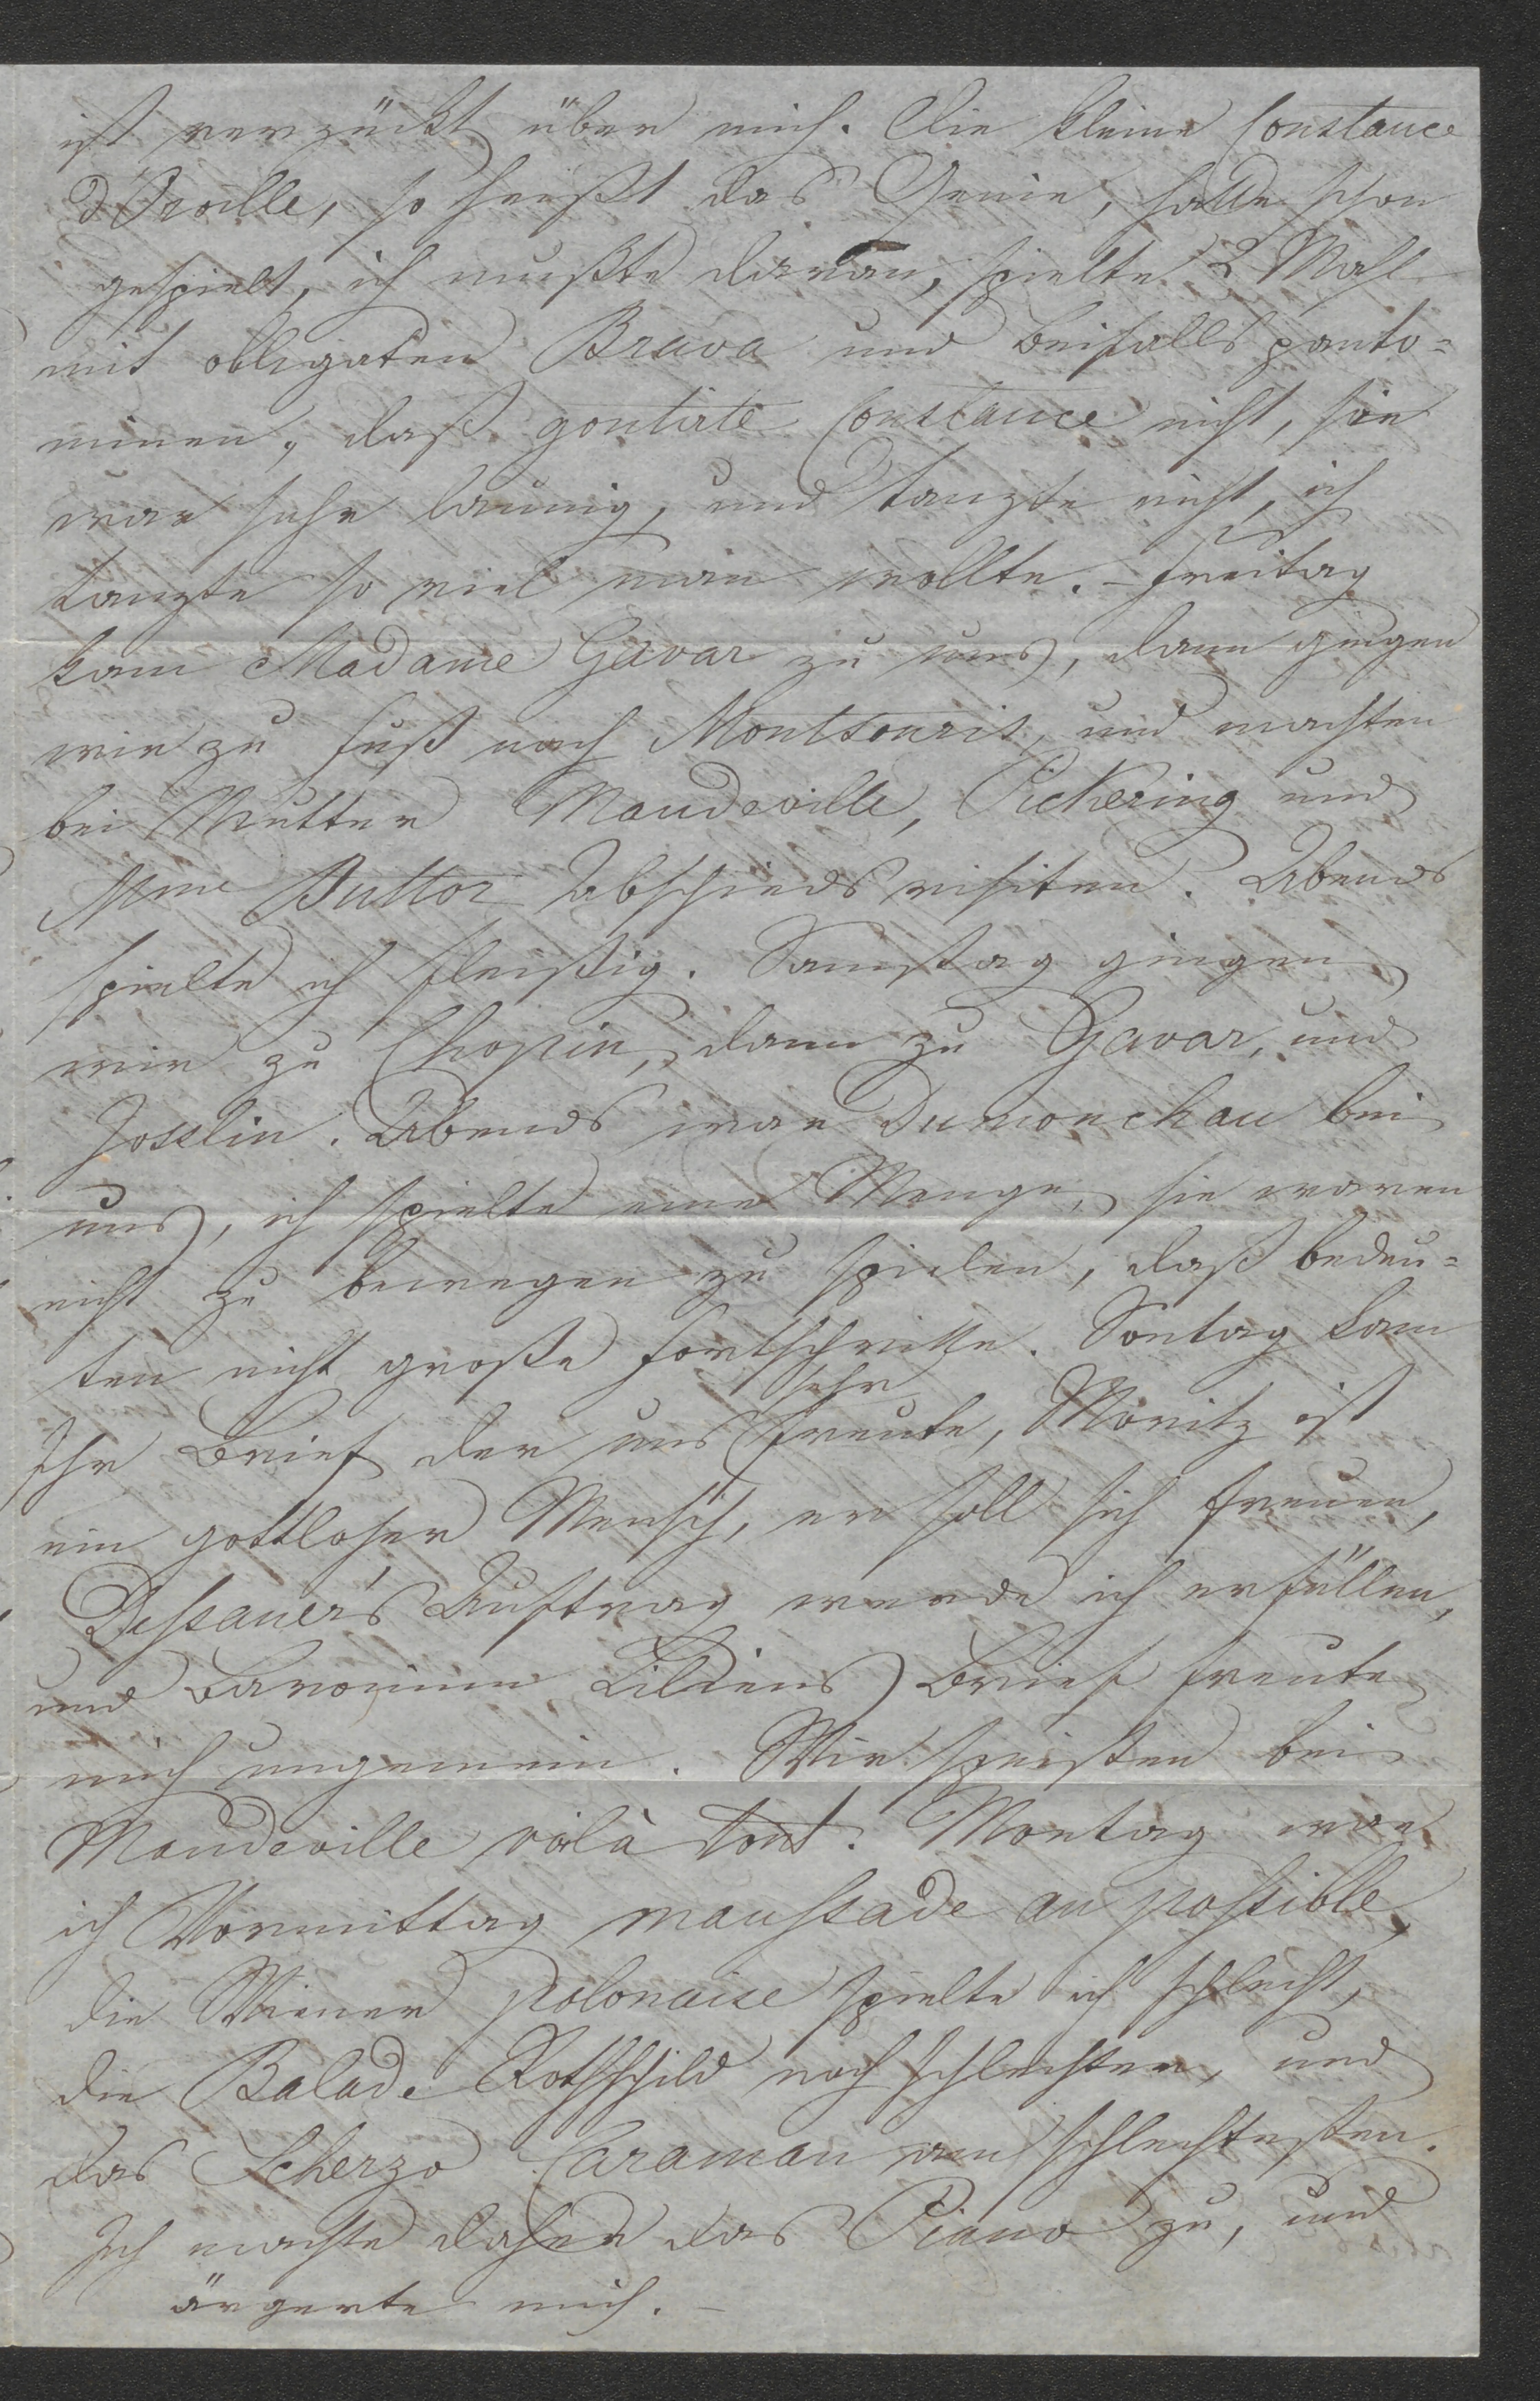 ist verzückt über mich. Die kleine Constance
d'Orville, so heißt das Genie, hatte schon
gespielt, ich mußte daran, spielte 2 Mahl
mit obligaten Brava und Beifalls panto=
minen, daß goutirte Constance nicht, sie
war sehr launig, und tanzte nicht, ich
tanzte so viel man wollte. – Freitag
kam Madame Gavar zu uns, dann gingen
wir zu Fuß nach Montsouris, und machten
bei Mutter Mandeville, Pickering und
Mme Buttor Abschieds visiten. Abends
spielte ich fleißig. Samstag gingen
wir zu Chopin, dann zu Gavar, und
Josslin. Abends war Dumonchau bei
uns, ich spielte eine Menge, sie waren
nicht zu bewegen zu spielen, daß bedeu=
ten nicht große Fortschritte. Sontag kam
Ihr Brief der uns sehr freute, Moritz ist
ein gottloser Mensch, er soll sich freuen,
Dessauer's Auftrag werde ich erfüllen,
und Baroninn Liliens Brief freute
mich ungemein. Wir speisten bei
Mandeville voilà tout. Montag war
ich Vormittag maussade au possible,
die Wiener polonaise spielte ich schlecht,
die Balade Rothschild noch schlechter, und
das Scherzo Caraman am schlechtesten.
Ich machte daher das Piano zu, und
ärgerte mich. –